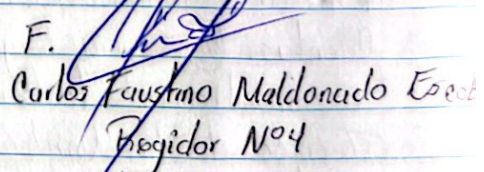 F.
Carlos Faustino Maldonado
Regidor Nº4